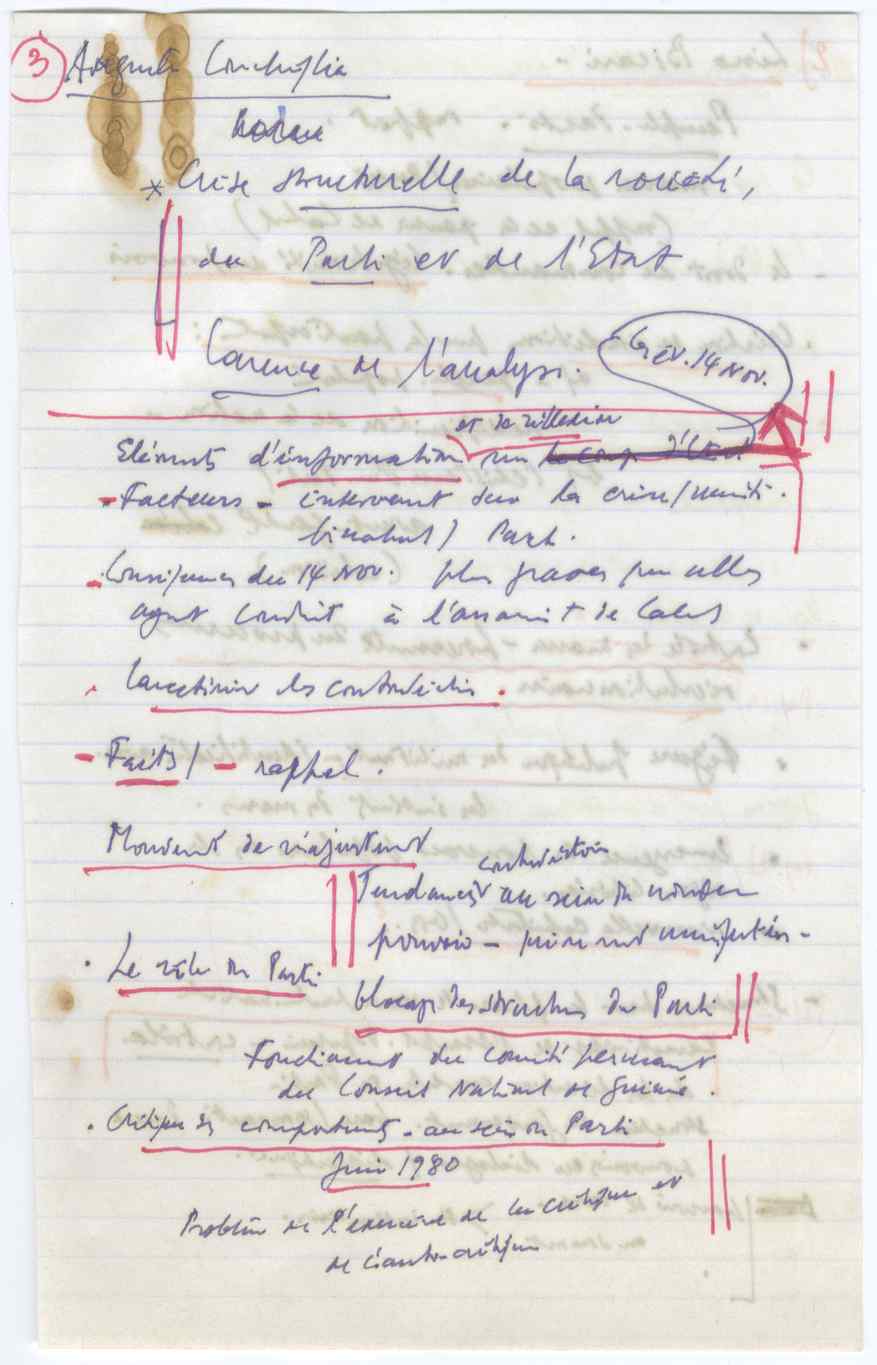 3
Augusta Conchiglia
* Crise structurelle de la société,
du Parti et de l'Etat
Carence de l'analyse.
év. 14 Nov.
et de réflexion
Eléments d'information sur le coup d'Etat
- Facteurs - intervenant sur la crise / unité
binational / Parti.
- Conséquences du 14 Nov. plus graves que celles
ayant conduit à l'assassinat de Cabral
. Caractériser les contradictions.
- Faits / - rappel.
Mouvement de réajustement
contradictoires
Tendances au sein du nouveau
pouvoir -
. Le rôle du Parti.
blocage des structures du Parti
Fonctionnement du Comité permanent
du Conseil National de Guinée.
. Critique des comportements - au sein du Parti
Juin 1980
Problème de l'exercice de la critique et
de l'auto-critique